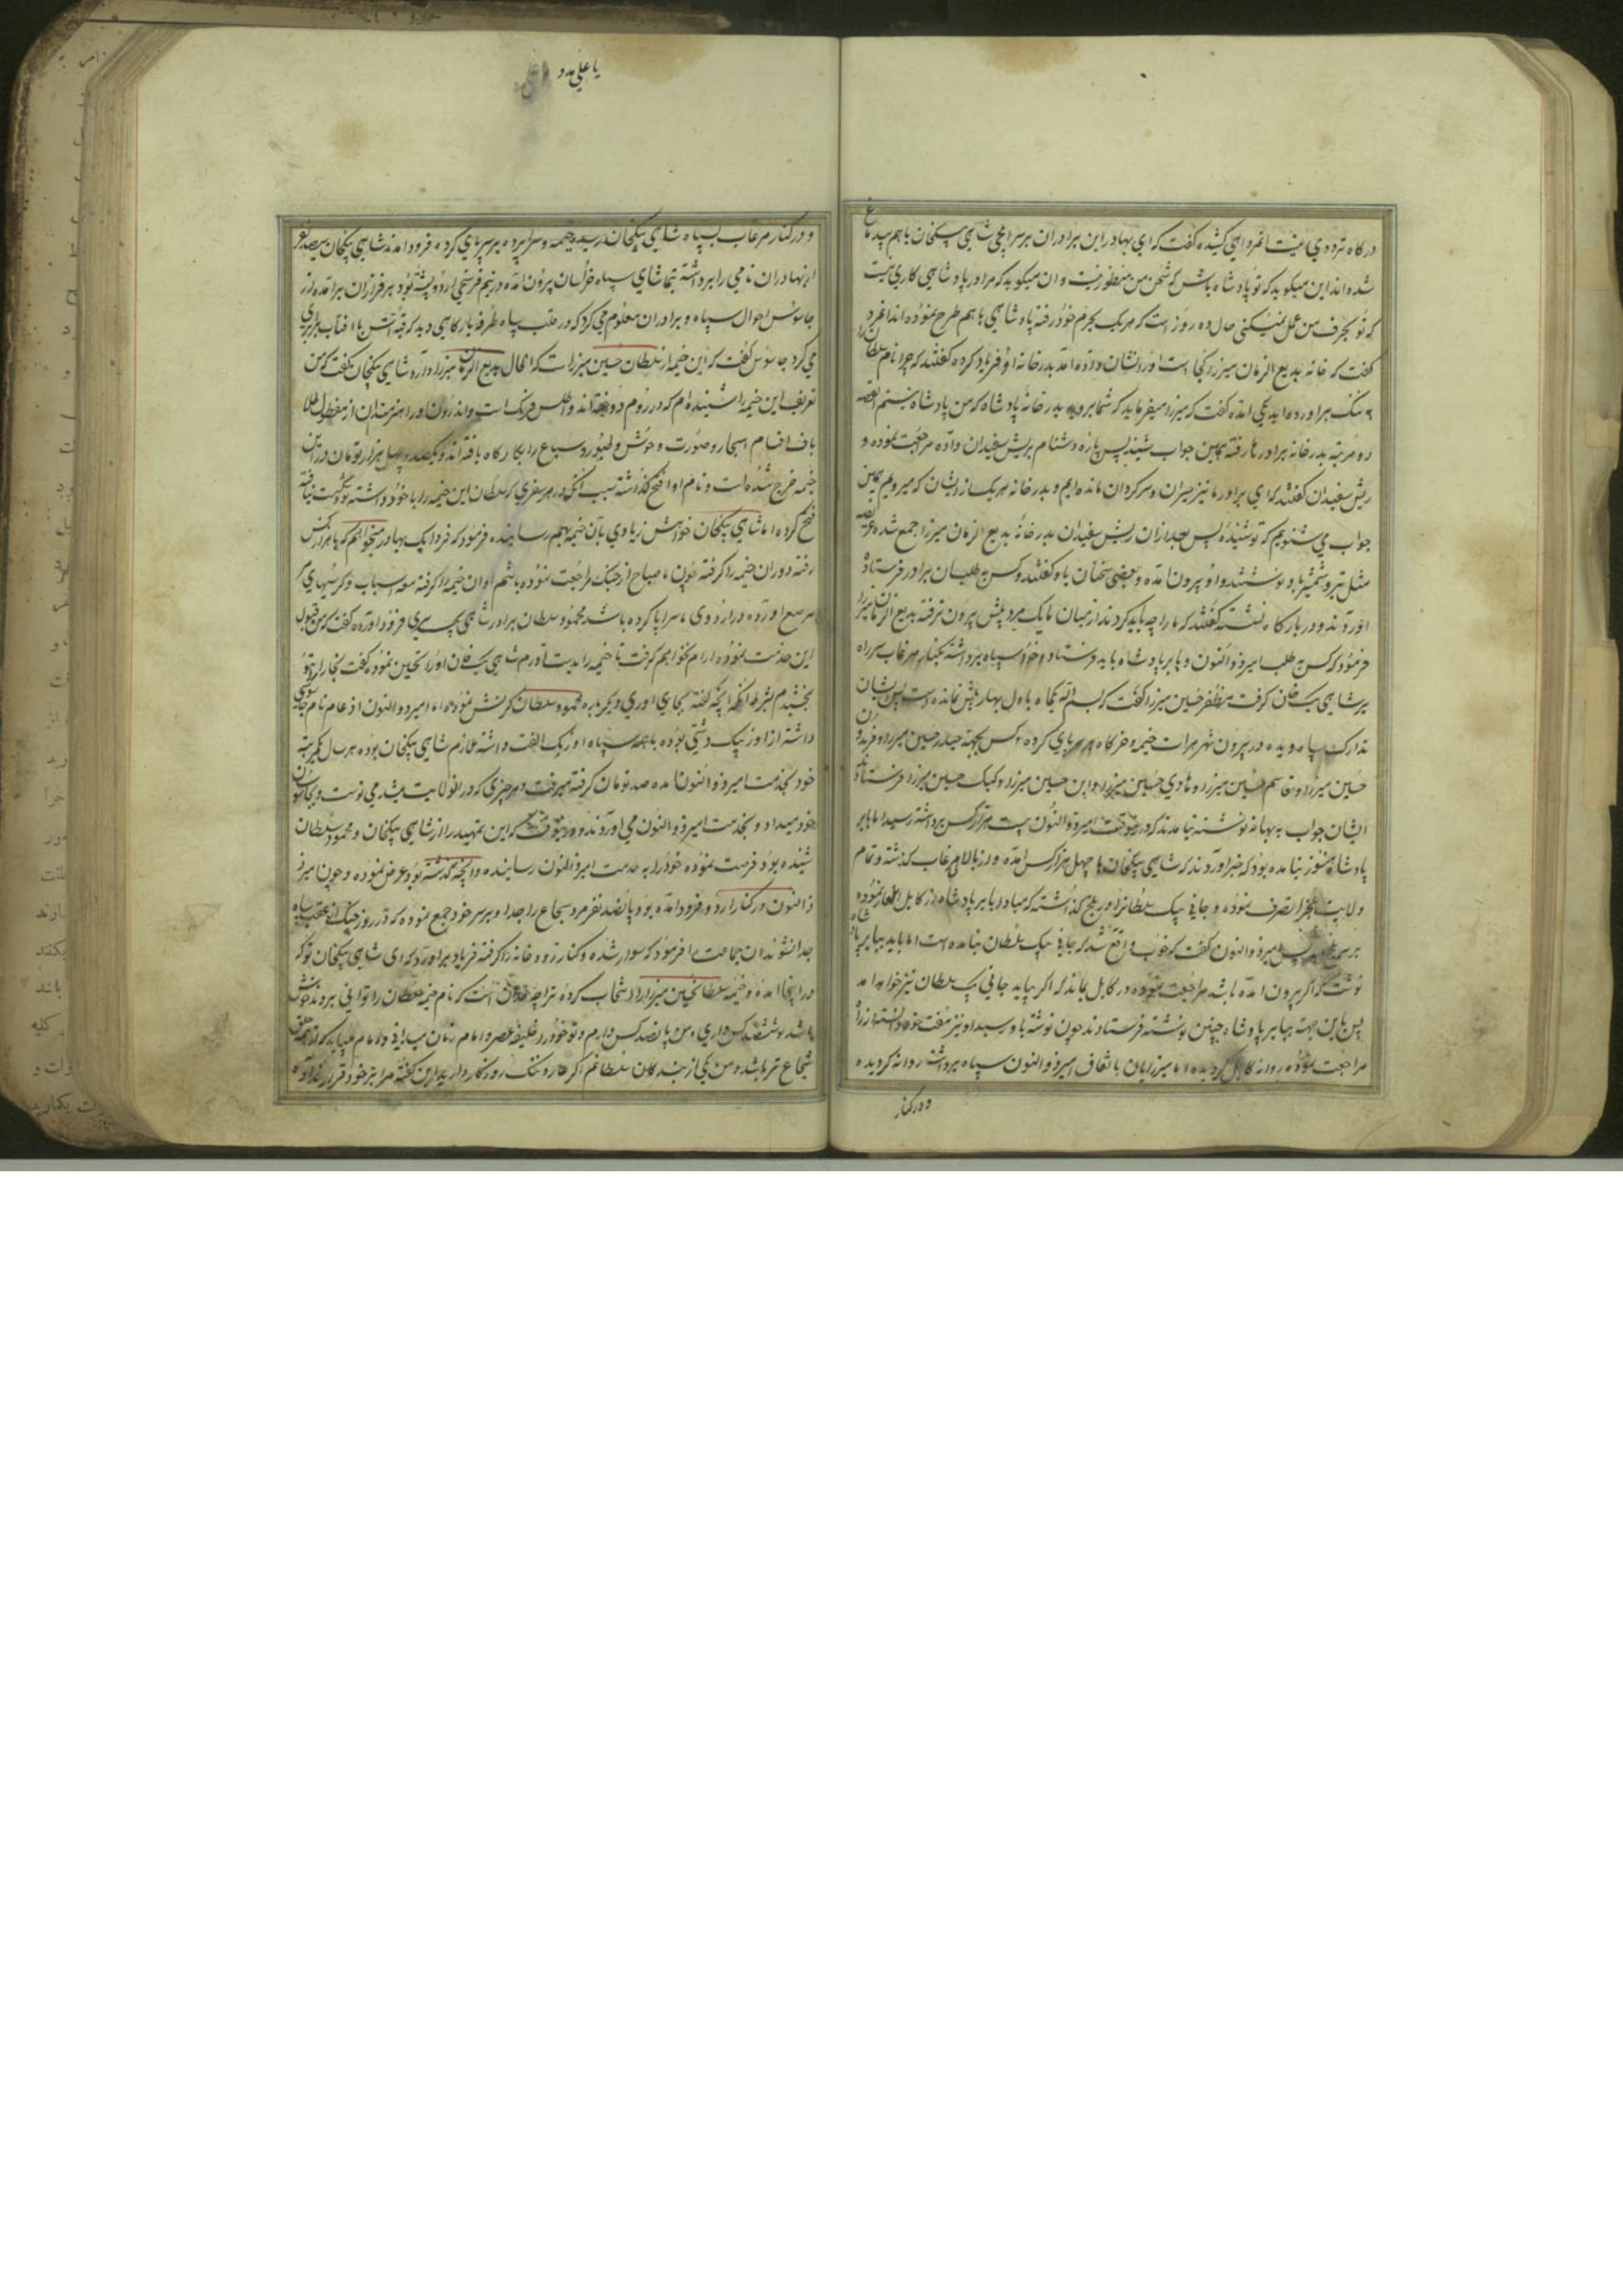 درکاه ترددی نیست انمرد اهی کشیده کفت که ای بهادر این برادران بر سر ایلچی شاهی بیکخان باهم بیدماغ
شده اند این میکوید که تو پادشاه باش که سخن من منظور نیست و ان میکوید که مرا در پادشاهی کاری نیست
که تو بحرف من عمل نمیکنی حال ده روز است که هر یک بحرم خود رفته پادشاهی باهم طرح نموده اند انمرد
کفت که خانه بدیع الزمان میرزا کجا است اورا نشان دادند امد بدر خانه او فریاد کرده کفتند که چرا نام سلطان را
به ننک براورده اید یکی امده کفت که میرزا میفرماید که شما بروید بدر خانه پادشاه که من پادشاه نیستم القصه
دو مرتبه بدر خانه برادرها رفته همین جواب شنید پس پاره دشنام بریش سفیدان داده مراجعت نموده و
ریش سفیدان کفتند که ای برادر ما نیز حیران و سرکردان مانده ایم و بدر خانه هر یک از ایشان که میرویم همین
جواب می شنویم که تو شنیده پس بعد ازان ریش سفیدان بدر خانه بدیع الزمان میرزا جمع شده عریضه
مثل تیر و شمشیر باو نوشتند و او بیرون امده و بعضی سخنان باو کفتند و کس به طلب ان برادر فرستاده
اوردند و در بارکاه نشسته کفتند که ما را چه باید کرد ندانیان ما یک مرد پیش بیرون نرفته بدیع الزمان میرزا
فرمود که کس به طلب امیر ذوالنون و بابر پادشاه باید فرستاد و خود سپاه برداشته بکنار مرغاب سر راه
بر شاهی بیک خان کرفت مظفر حسین میرزا کفت که بسم الله یکماه باول بهار پیش نمانده است پس ایشان
تدارک سپاه دیده در بیرون شهر هرات خیمه و خرکاه بر پای کرده و کس بجهة حیدر حسین میرزا و فریدون
حسین میرزا و قاسم حسین میرزا و هادی حسین میرزا و ابن حسین میرزا و کپک حسین میرزا فرستاده
ایشان جواب به بهانه نوشته نیامدند که در انوقت امیر ذوالنون بیست هزار کس برداشته رسید اما بابر
پادشاه هنوز نیامده بود که خبر اوردند که شاهی بیکخان با چهل هزار کس امده و از بالای مرغاب کذشته و تمام
ولایت بلخ را تصرف نموده و جانی بیک سلطانرا در بلخ کذاشته که مبادا بابر پادشاه از کابل ایلغار نموده
بر سر بلخ پس امیر ذوالنون کفت که خوب واقع شد که جانی بیک سلطان نیامده است اما باید ببابر پادشاه
نوشت که اکر بیرون امده باشد مراجعت نموده در کابل بماند که اکر بیاید جانی بیک سلطان نیز خواهد امد
پس باین جهت ببابر پادشاه چنین نوشته فرستادند چون نوشته باو رسید او نیز مفت خود دانسته از راه
مراجعت نموده روانه کابل کردیده اما میرزایان باتفاق امیر ذوالنون سپاه برداشته روانه کردیده
و در کنار
یا علی مدد
و در کنار مرغاب بسپاه شاهی بیکخان رسیده خیمه و سراپرده بر سر پای کرده فرود امدند شاهی بیکخان سیصد نفر
از بهادران نامی را برداشته بتماشای سپاه خراسان بیرون امده در نیم فرسخی اردو پشته بود بر فراز ان برامده از
جاسوس احوال سپاه و برادران معلوم می کرد که در قلب سپاه طرفه بارکاهی دید که قبه اتش با افتاب برابری
می کرد جاسوس کفت که این خیمه از سلطان حسین میرزا است که الحال بدیع الزمان میرزا دارد شاهی بیکخان کفت که من
تعریف این خیمه را شنیده ام که در روم دوخته اند و اطلس فرنک است و اندرون اورا هنرمندان از مفتول طلا
باف اقسام اشجار و صورت وحوش و طیور و سباع را بکار کاه بافته اند و یکصد و چهل هزار تومان در این
خیمه خرج شده است و نام اورا فتح کذاشته سبب انکه در هر سفری که سلطان این خیمه را با خود داشته نکوست نیافته
فتح کرده اما شاهی بیکخان خواهش زیادی بان خیمه بهم رسانیده فرمود که فردا یک بهادر میخواهم که با هزار کس
رفته دوران خیمه را کرفته چون ما صباح از جنک مراجعت نموده باشم او ان خیمه را کرفته معه اسباب و کرسیهای
مرصع اورده در اردوی ما سرا پا کرده باشد محمود سلطان برادر شاهی بیک سری فرود اورده کفت که من قبول
این خدمت نموده ارام نخواهم کرفت تا خیمه را بدست اورم شاهی بیک خان اورا تحسین نموده کفت بخارا را بتو
بخشیدم بشرط انکه انچه کفته بجای اوری دیکر باره محمود سلطان کرنش نموده اما امیر ذوالنون اذ عام نام جاسوسی
داشته از اوزبک دشتی بوده با همه سپاه اوزبک الفت داشته ملازم شاهی بیکخان بوده هر سال یکمرتبه
خود بخدمت امیر ذوالنون امده صد تومان کرفته میرفت و هر خبری که در انولایت میشد می نوشت و بجاسوسان
خود میداد و بخدمت امیر ذوالنون می اوردند و در انوقت که این تمهید را از شاهی بیکخان و محمود سلطان
شنیده بود فرصت نموده خود را به خدمت امیر ذالنون رسانیده و انچه کذشته بود عرض نموده و چون امیر
ذالنون در کنار اردو فرود امده بود پانصد نفر مرد شجاع را جدا و بر سر خود جمع نموده که در روز جنک از عقب سپاه
جدا نشوند ان جماعت را فرمود که سوار شده و کنار رودخانه را کرفته فریاد براورد که ای شاهی بیکخان تو که
در اینجا امده و خیمه سلطان حسین میرزا را انتخاب کرده ترا چه حد ان است که نام خیمه سلطان را توانی برد
باشد تو ششصد کس داری و من پانصد کس دارم و تو خود را خلیفه عصر و امام زمان میدانی و امام میباید که از همه خلق
شجاع تر باشد و من یکی از بندکان سلطانم اکر عار و ننک روزکار داری ازین کفته مرا بنیزه خود قرار نداده